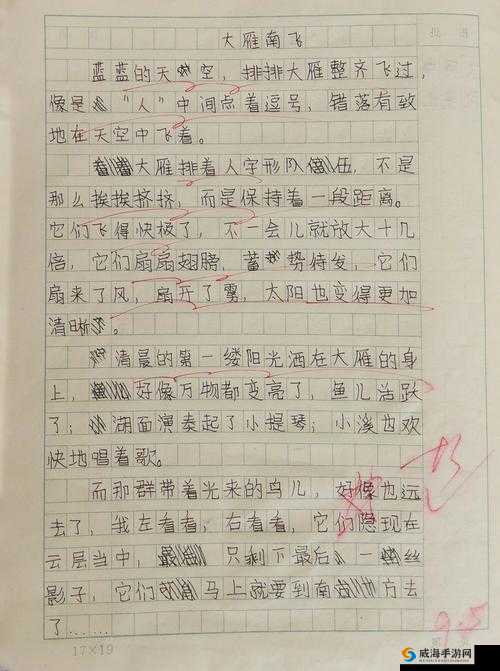 大雁南飞
蓝蓝的天空，排排大雁整齐飞过，
像是“人”中间点着逗号，错落有致
地在天空中飞着。
大雁排着人字形队伍，不是
那么挨挨挤挤，而是保持着一段距离。
它们飞得快极了，不一会儿就放大十几
倍，它们扇扇翅膀，蓄势待发，它们
扇来了风，扇开了雾，太阳也变得更加
清晰。
清晨的第一缕阳光洒在大雁的身
上，好像万物都变亮了，鱼儿活跃
了；湖面演奏起了小提琴；小溪也欢
快地唱着歌。
而那群带着光来的鸟儿，好像也远
去了，我左看看，右看看，它们隐现在
云层当中，只剩下最后一丝
影子，它们马上就要到南方去
了……
17×19
威海手游网